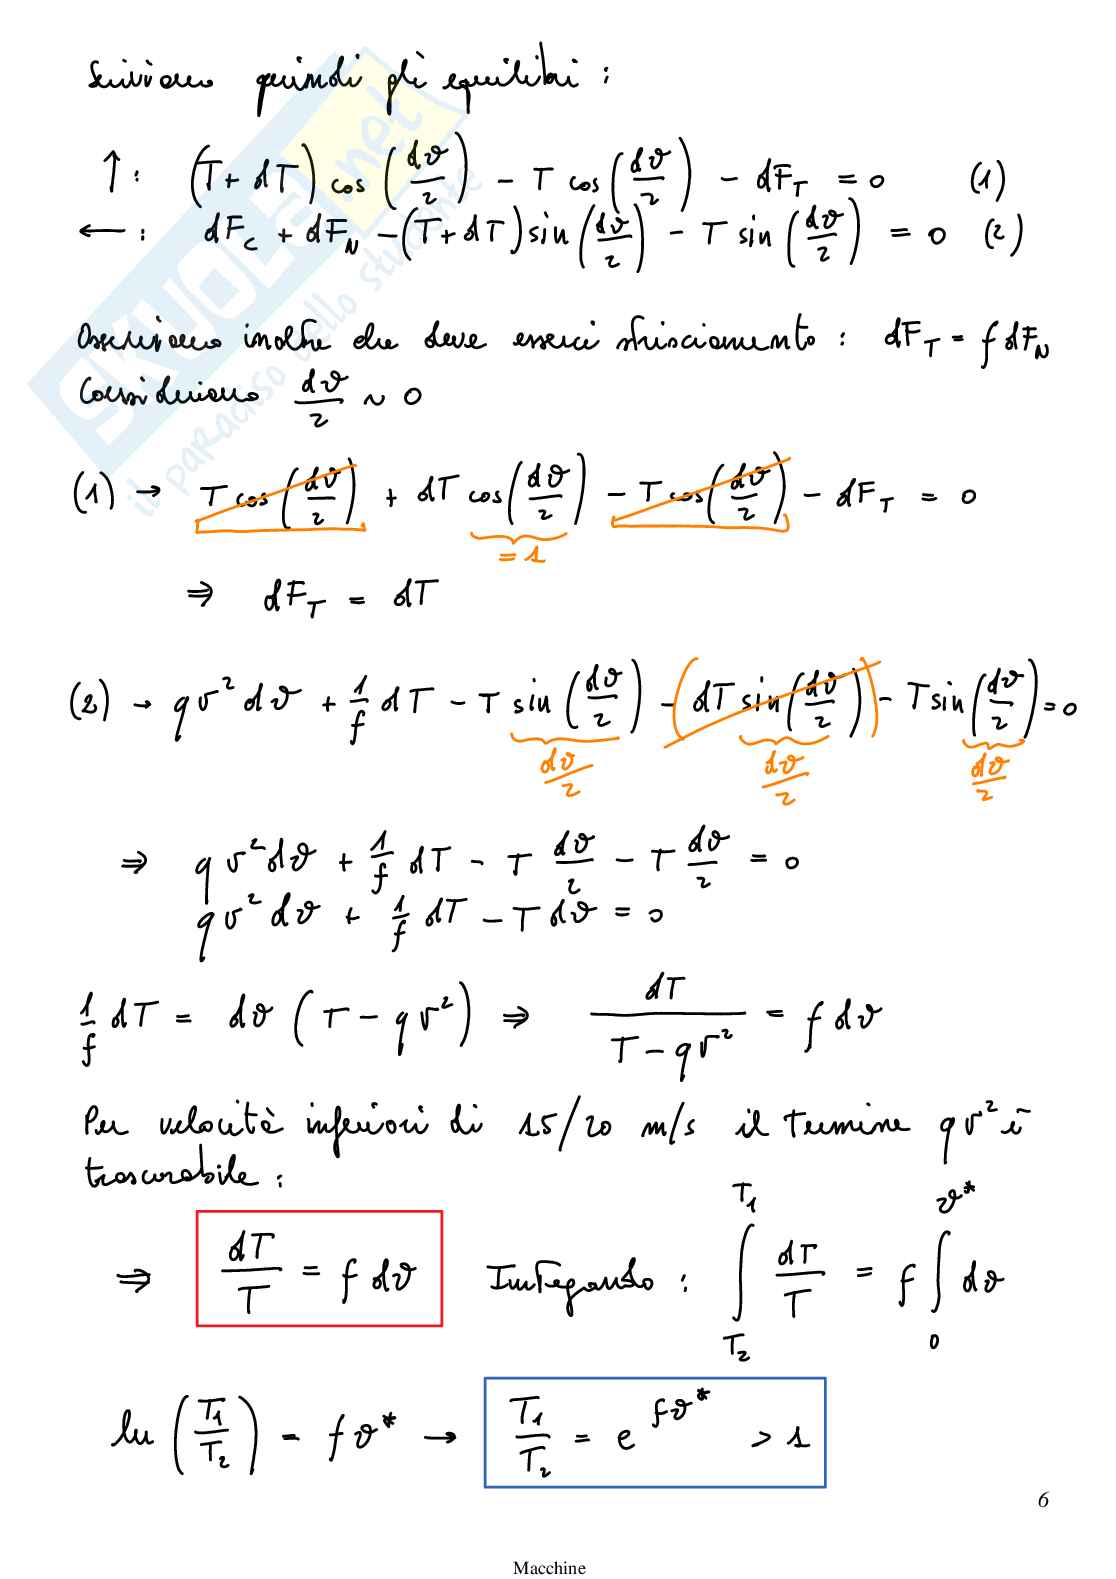 Scriviamo quindi gli equilibri :
↑ : (T + dT) cos (dϑ/2) - T cos (dϑ/2) - dF_T = 0 (1)
← : dF_C + dF_N - (T + dT) sin (dϑ/2) - T sin (dϑ/2) = 0 (2)
Osserviamo inoltre che deve esserci strisciamento : dF_T = f dF_N
Consideriamo dϑ/2 ~ 0
(1) → T cos (dϑ/2) + dT cos (dϑ/2) - T cos (dϑ/2) - dF_T = 0
= 1
⇒ dF_T = dT
(2) → q v² dϑ + 1/f dT - T sin (dϑ/2) - (dT sin (dϑ/2)) - T sin (dϑ/2) = 0
dϑ/2 dϑ/2 dϑ/2
⇒ q v² dϑ + 1/f dT - T dϑ/2 - T dϑ/2 = 0
q v² dϑ + 1/f dT - T dϑ = 0
1/f dT = dϑ (T - q v²) ⇒ dT/(T - q v²) = f dϑ
Per velocità inferiori di 15/20 m/s il termine q v² è
trascurabile :
⇒ dT/T = f dϑ Integando : ∫_{T_2}^{T_1} dT/T = f ∫_0^{ϑ*} dϑ
ln (T_1/T_2) = f ϑ* → T_1/T_2 = e^{f ϑ*} > 1
6
Macchine
SKUOLA.net
il paradiso dello studente